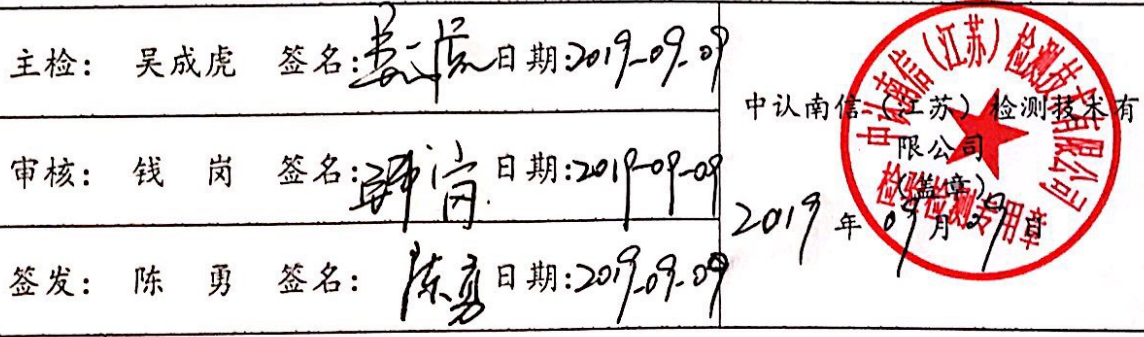 主检： 吴成虎 签名： 日期:2019-09-09
审核： 钱 岗 签名: 钱岗 日期:2019-09-09
签发： 陈 勇 签名： 陈勇 日期:2019-09-09
中认南信（江苏）检测技术有
限公司
(盖章)
2019 年 09 月 09 日
中认南信（江苏）检测技术有限公司
检验检测专用章